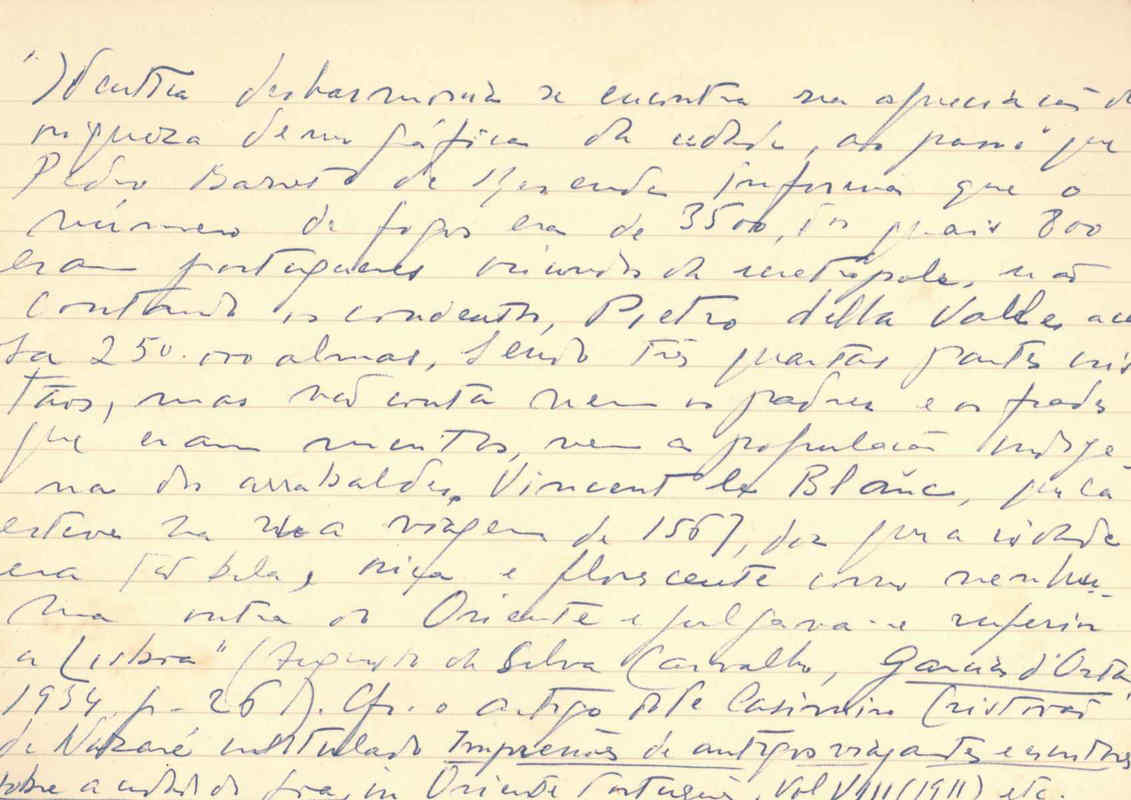 "Idêntica desharmonia se encontra na apreciação d
riqueza demográfica da cidade, ao passo que
Pedro Barreto de Rezende informa que o
número de fogos era de 3500, dos quais 800
eram portugueses oriundos da metrópole, não
contando os condentos, Pietro della Valle
ta 250.000 almas, sendo três quartas partes cris
tãos, mas não conta nem os padres e os frades
que eram muitos, nem a população indíge-
na dos arrabaldes, Vincent le Blanc, que cá
esteve na viagem de 1567, diz que a cidade
era tão bela, rica e florescente como nenhu-
ma outra do Oriente e julgava-a superior
a Lisboa" (Augusto da Silva Carvalho, Garcia d'Orta
1934, p. 261). Cfr. o artigo de Casimiro Cristovão
de Nazaré intitulado Impressões de antigos viajantes e escritores
sobre a cidade de Goa, in Oriente Português, Vol VIII (1911) etc.